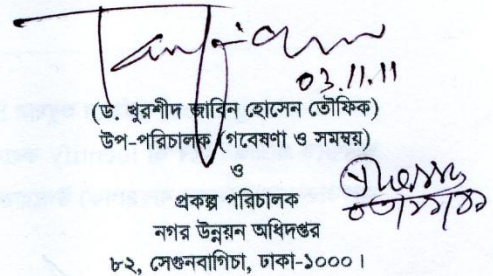 03.11.11
(ড. খুরশীদ জাবিন হোসেন তৌফিক)
উপ-পরিচালক (গবেষণা ও সমন্বয়)
ও
প্রকল্প পরিচালক
নগর উন্নয়ন অধিদপ্তর
৮২, সেগুনবাগিচা, ঢাকা-১০০০।